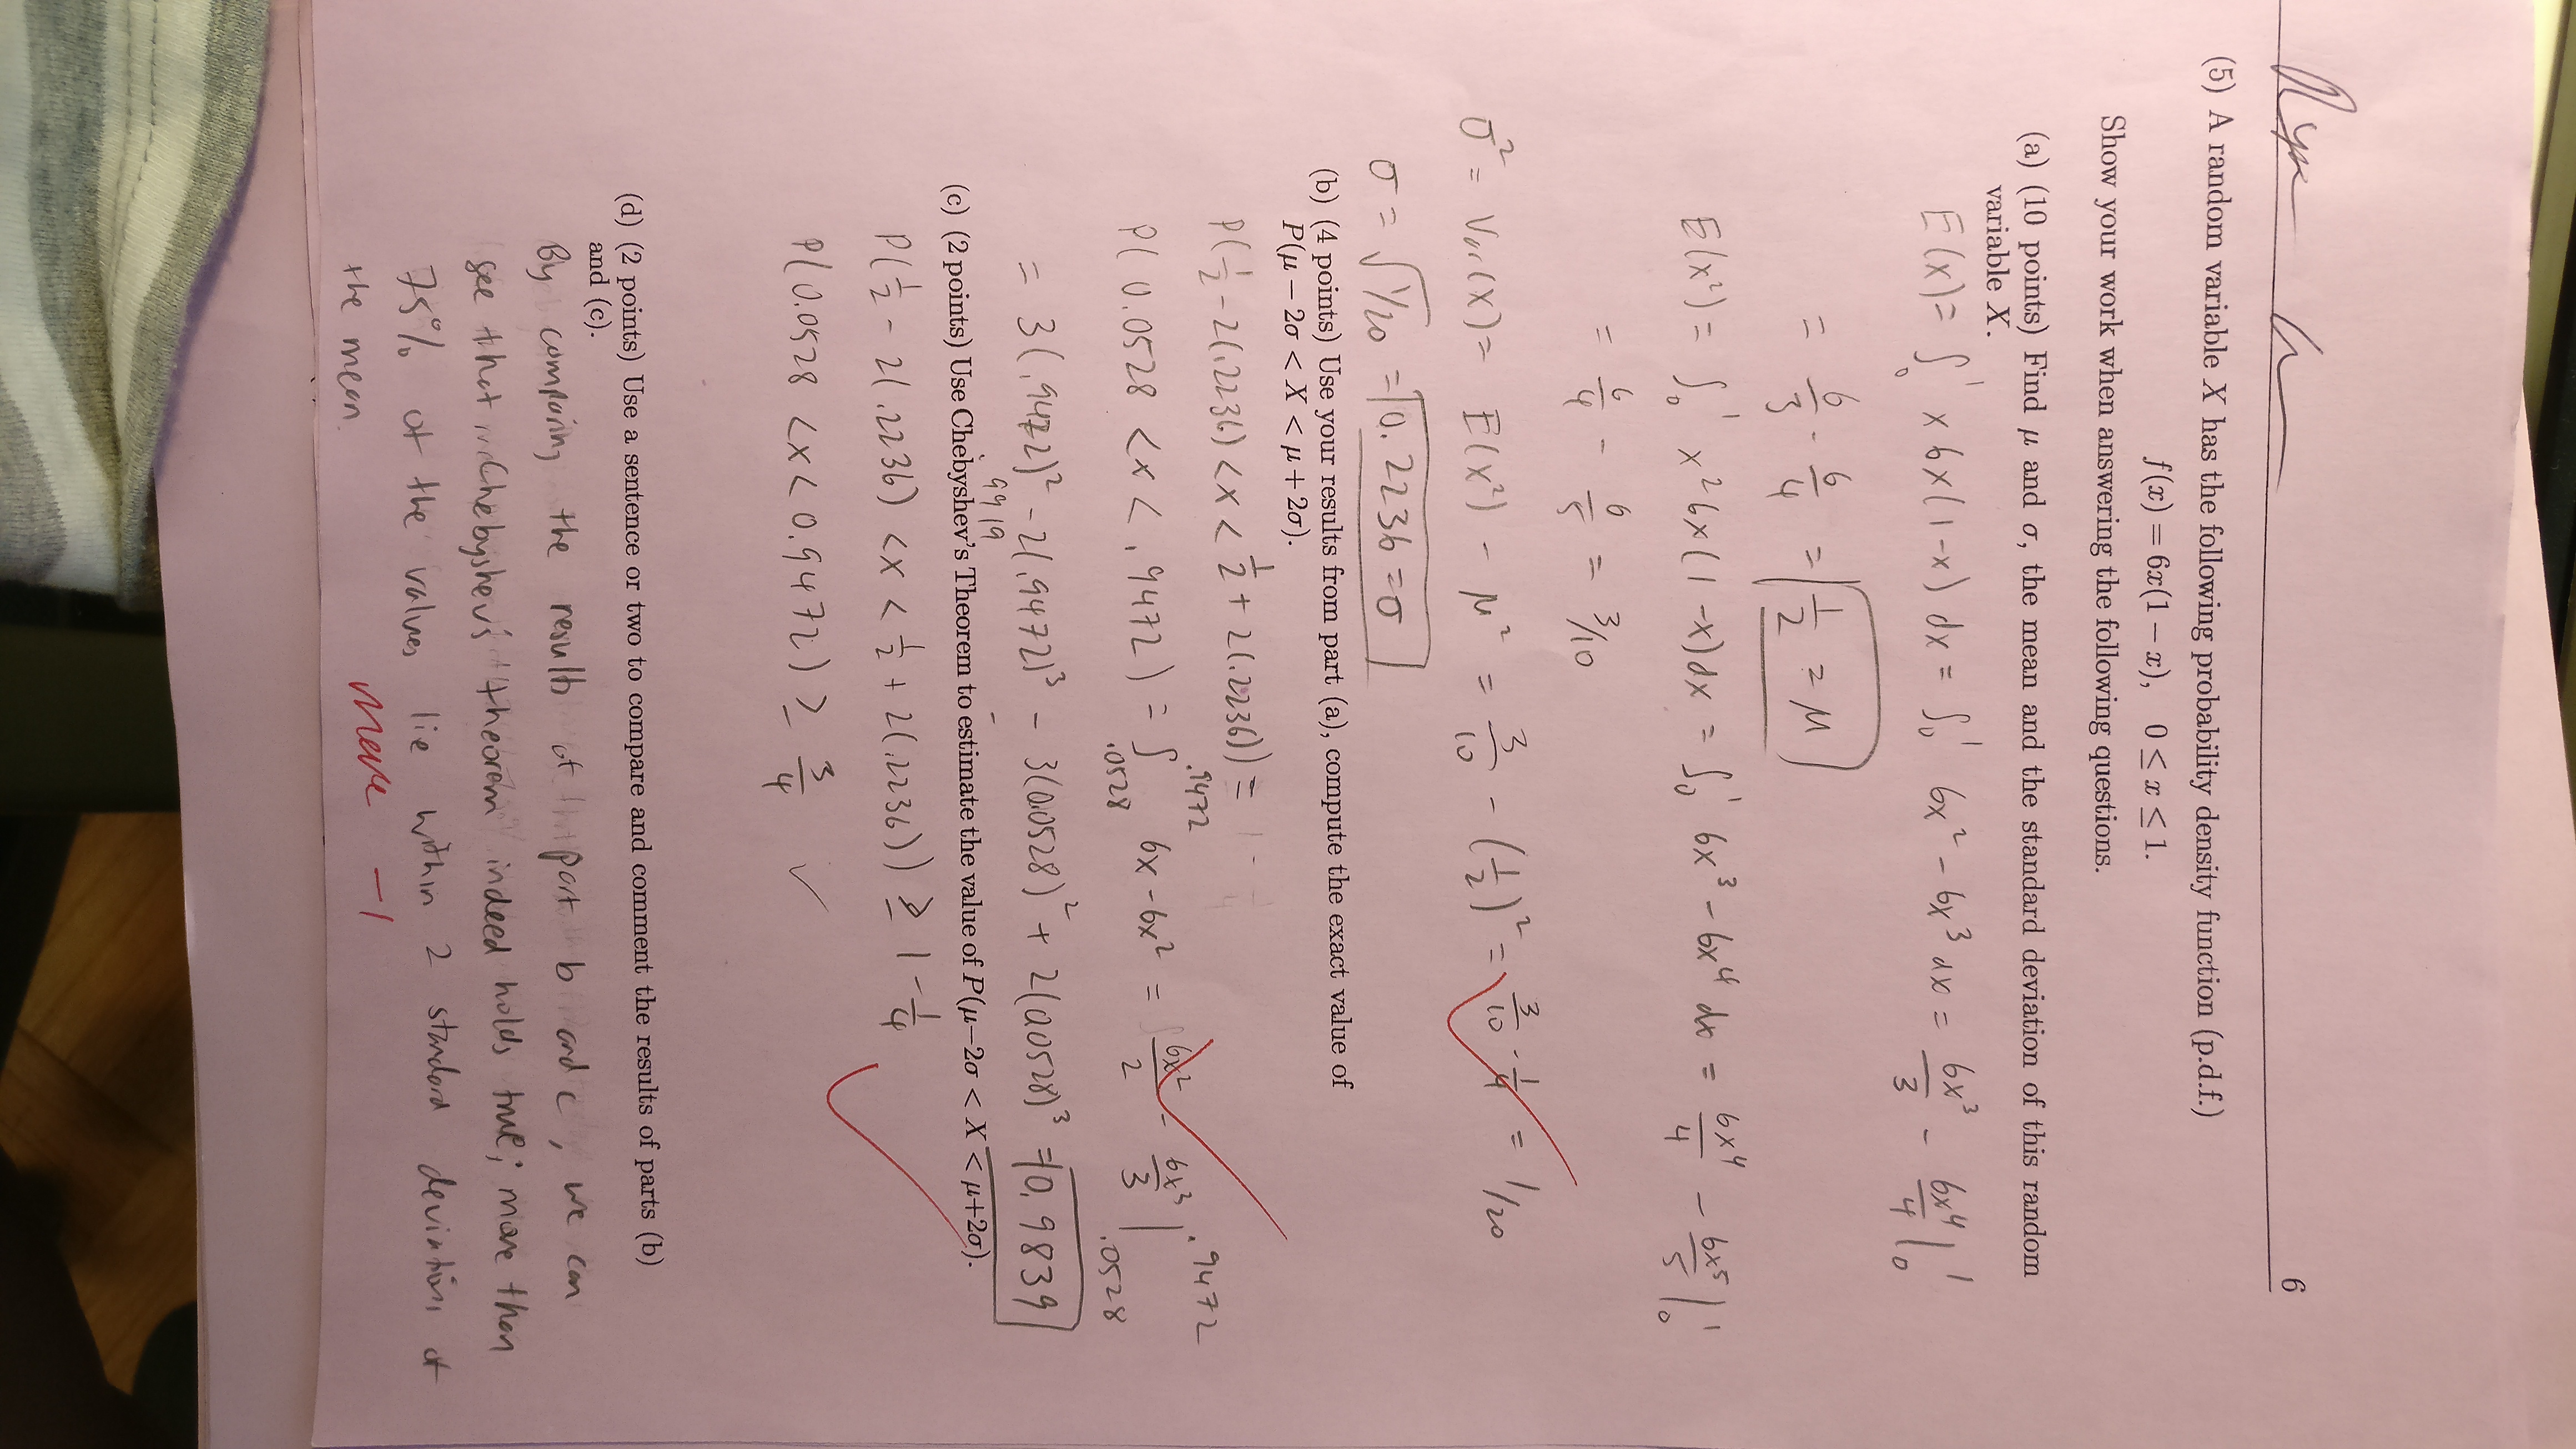 6
(5) A random variable X has the following probability density function (p.d.f.)
f(x) = 6x(1 − x), 0 ≤ x ≤ 1.
Show your work when answering the following questions.
(a) (10 points) Find μ and σ, the mean and the standard deviation of this random
variable X.
E(x) = ∫₀¹ x 6x(1-x) dx = ∫₀¹ 6x² - 6x³ dx = 6x³/3 - 6x⁴/4 |₀¹
= 6/3 - 6/4 = 1/2 = μ
E(x²) = ∫₀¹ x² 6x(1-x)dx = ∫₀¹ 6x³ - 6x⁴ dx = 6x⁴/4 - 6x⁵/5 |₀¹
= 6/4 - 6/5 = 3/10
σ² = Var(X) = E(x²) - μ² = 3/10 - (1/2)² = 3/10 - 1/4 = 1/20
σ = √1/20 = 0.2236 = σ
(b) (4 points) Use your results from part (a), compute the exact value of
P(μ − 2σ < X < μ + 2σ).
P(1/2 - 2(.2236) < x < 1/2 + 2(.2236)) =
P(0.0528 < x < .9472) = ∫ .0528 .9472 6x - 6x² = 6x²/2 - 6x³/3 | .0528 .9472
= 3(.9472)² - 2(.9472)³ - 3(0.0528)² + 2(0.0528)³ = 0.9839
(c) (2 points) Use Chebyshev's Theorem to estimate the value of P(μ−2σ < X < μ+2σ).
P(1/2 - 2(.2236) < x < 1/2 + 2(.2236)) ≥ 1 - 1/4
P(0.0528 < x < 0.9472) ≥ 3/4 ✓
(d) (2 points) Use a sentence or two to compare and comment the results of parts (b)
and (c).
By comparing the results of part b and c, we can
see that Chebyshev's theorem indeed holds true; more than
75% of the values lie within 2 standard deviations of
the mean.
−1